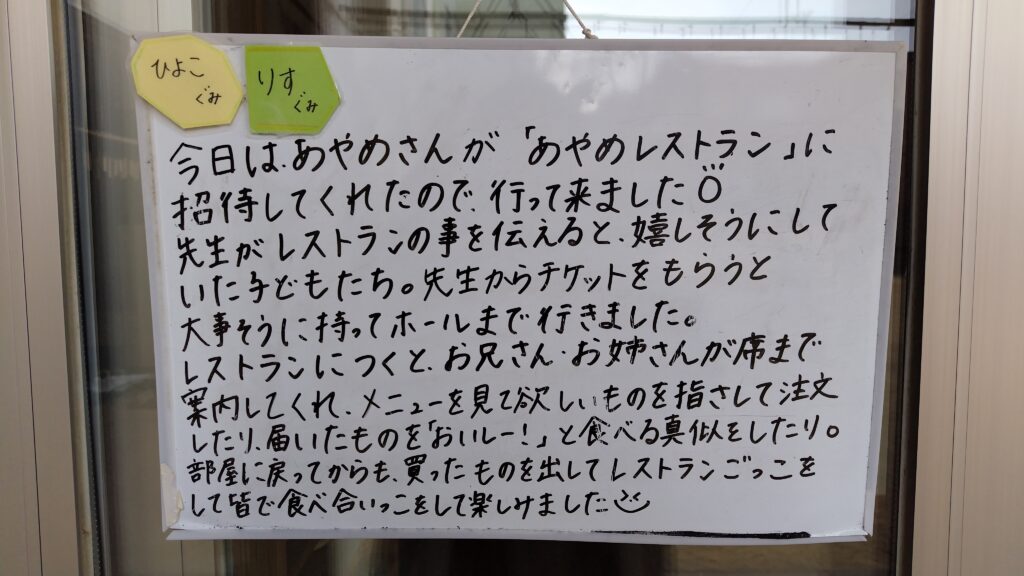 ひよこ
ぐみ
りす
ぐみ
今日は、あやめさんが「あやめレストラン」に
招待してくれたので、行って来ました
先生がレストランの事を伝えると、嬉しそうにして
いた子どもたち。先生からチケットをもらうと
大事そうに持ってホールまで行きました。
レストランにつくと、お兄さん・お姉さんが席まで
案内してくれ、メニューを見て欲しいものを指さして注文
したり、届いたものを「おいしー!」と食べる真似をしたり。
部屋に戻ってからも、買ったものを出してレストランごっこを
して皆で食べ合いっこをして楽しみました